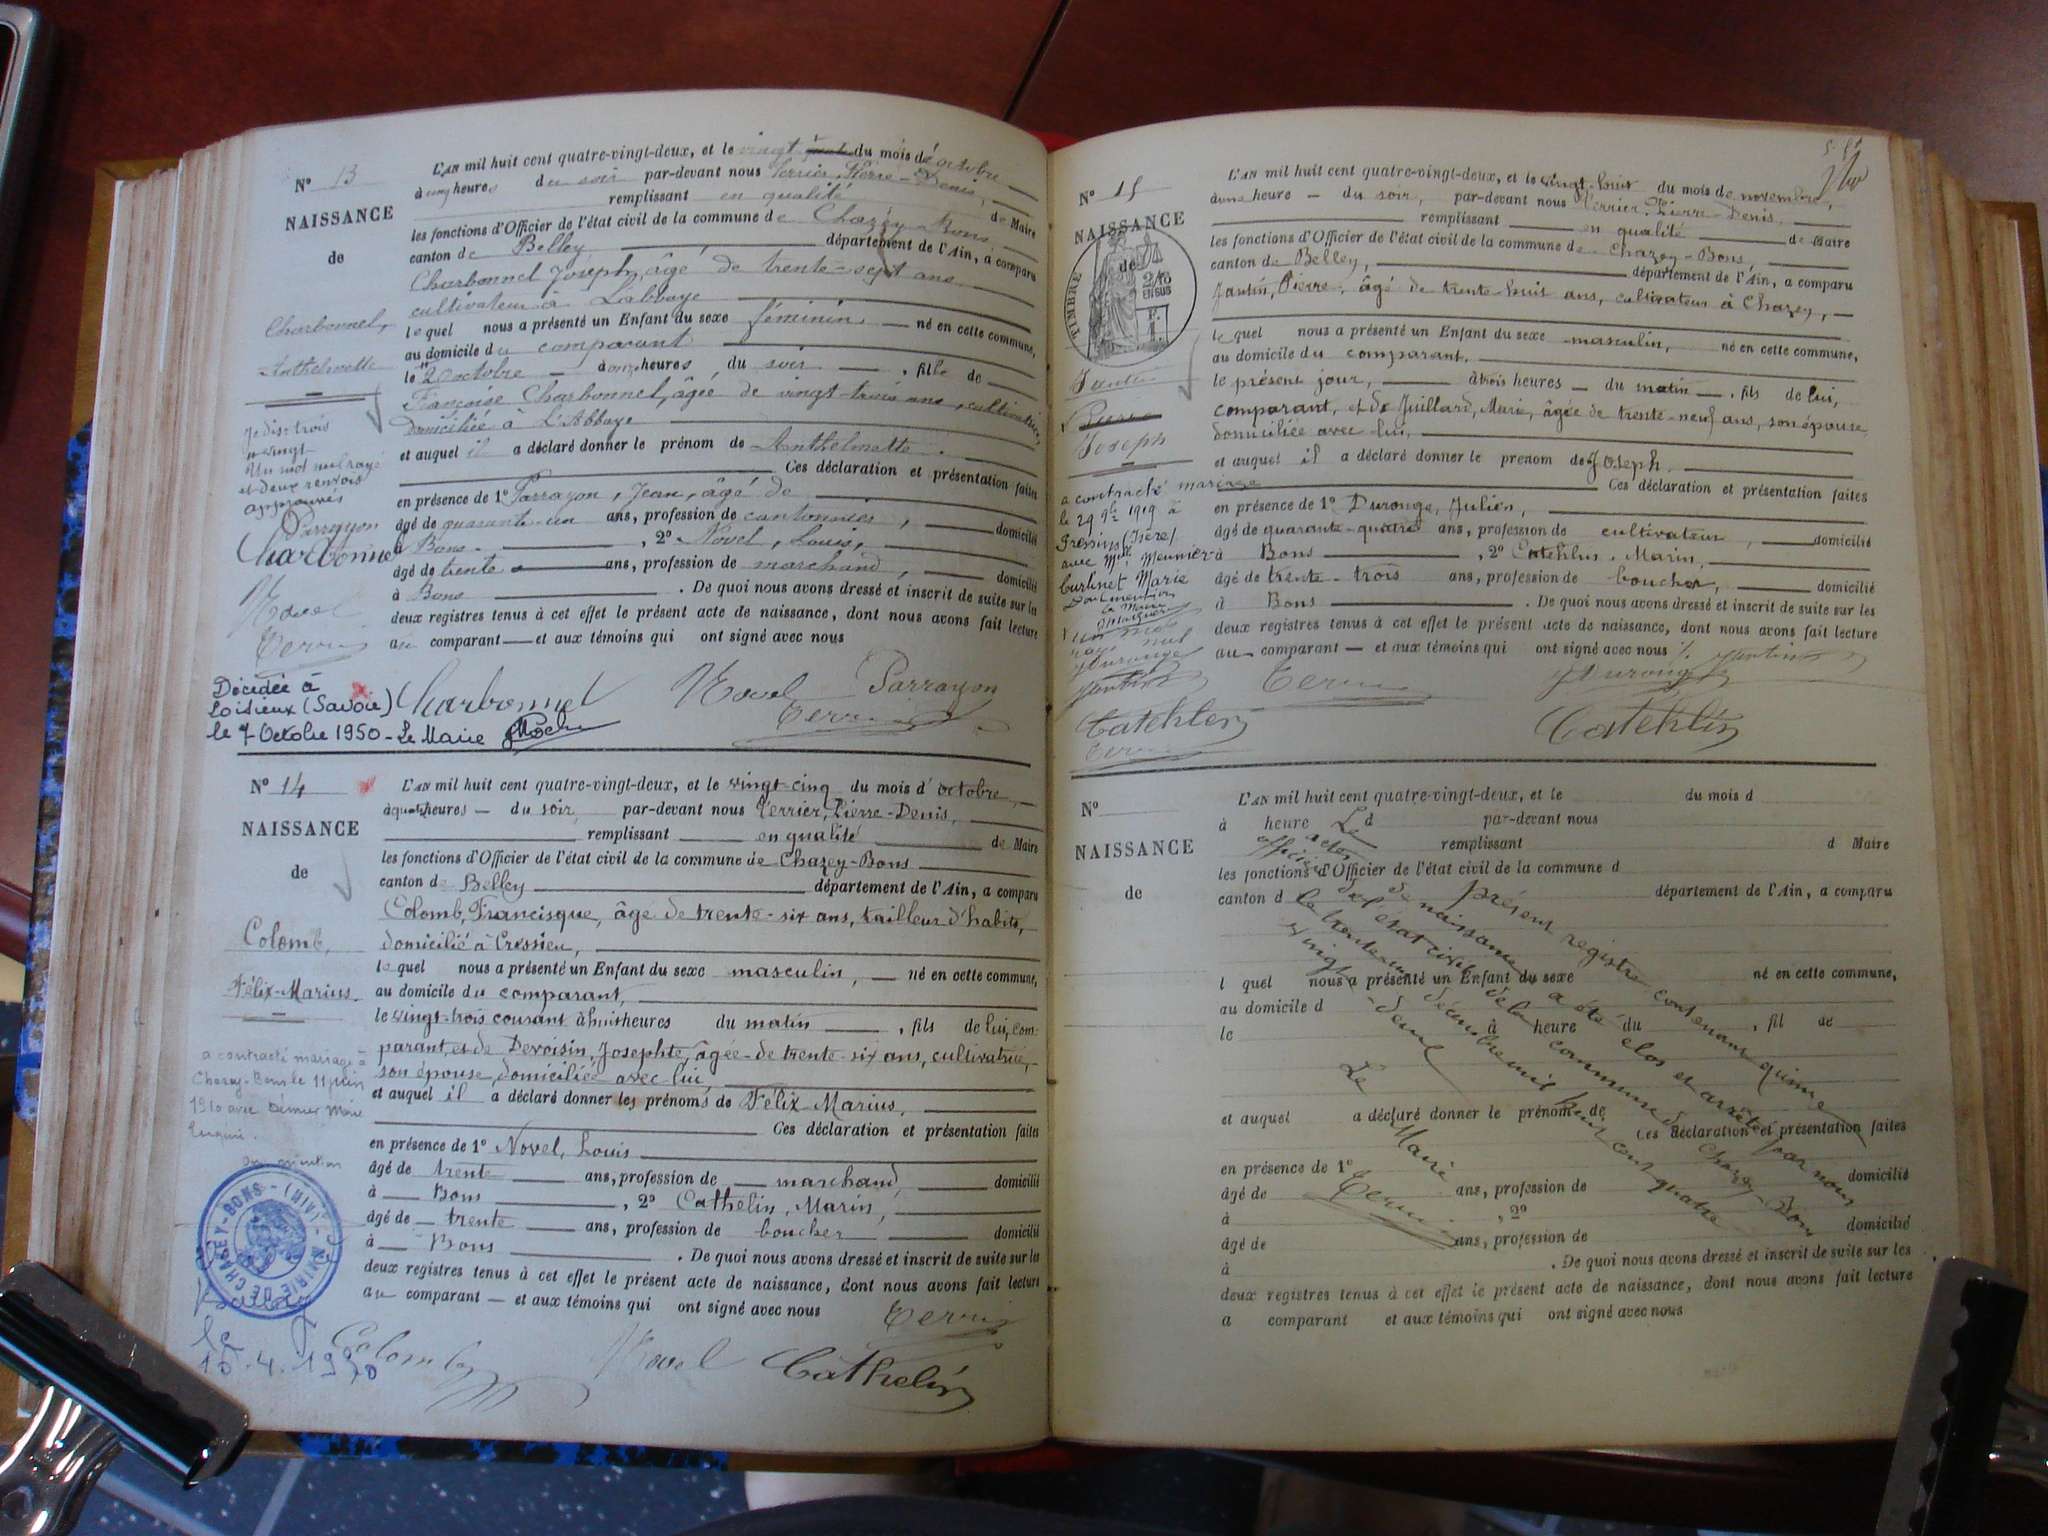 N° 13
NAISSANCE
de
Charbonnel,
Anthelmette
L'AN mil huit cent quatre-vingt-deux, et le vingt du mois d'octobre
à cinq heures du soir par-devant nous Terrier, Pierre-Denis,
remplissant en qualité de Maire
les fonctions d'Officier de l'état civil de la commune de Chazey-Bons,
canton de Belley département de l'Ain, a comparu
Charbonnel Joseph, âgé de trente-sept ans
cultivateur à Labbaye
le quel nous a présenté un Enfant du sexe féminin, né en cette commune,
au domicile du comparant
le 20 octobre à heures du soir, fille de
Françoise Charbonnel, âgée de vingt-trois ans, cultivatrice,
domiciliée à L'Abbaye
et auquel il a déclaré donner le prénom de Anthelmette.
Ces déclaration et présentation faites
en présence de 1° Parrayon, Jean, âgé de
âgé de quarante-un ans, profession de cantonnier, domicilié
à Bons, 2° Novel, Louis,
âgé de trente ans, profession de marchand, domicilié
à Bons. De quoi nous avons dressé et inscrit de suite sur les
deux registres tenus à cet effet le présent acte de naissance, dont nous avons fait lecture
au comparant et aux témoins qui ont signé avec nous
Je dis: trois
vingt
Un mot nul rayé
et deux renvois
approuvés
Parrayon
Charbonnel
Novel
Charbonnel Novel Parrayon
Décédée à
Loisieux (Savoie)
le 7 Octobre 1950 - Le Maire
N° 14
NAISSANCE
de
Colomb,
Félix-Marius.
L'AN mil huit cent quatre-vingt-deux, et le vingt-cinq du mois d'octobre,
à quatre heures du soir, par-devant nous Terrier, Pierre-Denis,
remplissant en qualité de Maire
les fonctions d'Officier de l'état civil de la commune de Chazey-Bons
canton de Belley département de l'Ain, a comparu
Colomb, Francisque, âgé de trente-six ans, tailleur d'habits,
domicilié à Cressieu,
le quel nous a présenté un Enfant du sexe masculin, né en cette commune,
au domicile du comparant,
le vingt-trois courant à huit heures du matin, fils de lui, com-
parant, et de Devoisin, Josephte, âgée de trente-six ans, cultivatrice,
son épouse, domiciliée avec lui,
et auquel il a déclaré donner les prénoms de Félix-Marius,
Ces déclaration et présentation faites
en présence de 1° Novel, Louis
âgé de trente ans, profession de marchand, domicilié
à Bons, 2° Cathelin, Marin,
âgé de trente ans, profession de boucher domicilié
à Bons. De quoi nous avons dressé et inscrit de suite sur les
deux registres tenus à cet effet le présent acte de naissance, dont nous avons fait lecture
au comparant et aux témoins qui ont signé avec nous
a contracté mariage à
Chazey-Bons le 11 juin
1910 avec Marie
MAIRIE DE CHAZEY-BONS - (AIN)
le
Colomb Novel Cathelin
N° 15
NAISSANCE
de
TIMBRE
2/10
EN SUS
Jantin
Pierre
Joseph
L'AN mil huit cent quatre-vingt-deux, et le vingt-huit du mois de novembre,
à une heure du soir, par-devant nous Terrier, Pierre-Denis,
remplissant en qualité de Maire
les fonctions d'Officier de l'état civil de la commune de Chazey-Bons,
canton de Belley, département de l'Ain, a comparu
Jantin, Pierre, âgé de trente-huit ans, cultivateur à Chazey,
le quel nous a présenté un Enfant du sexe masculin, né en cette commune,
au domicile du comparant.
le présent jour, à trois heures du matin, fils de lui,
comparant, et de Juillard, Marie, âgée de trente-neuf ans, son épouse,
domiciliée avec lui,
et auquel il a déclaré donner le prénom de Joseph.
Ces déclaration et présentation faites
en présence de 1° Durouge, Julien,
âgé de quarante-quatre ans, profession de cultivateur, domicilié
à Bons, 2° Catehlin, Marin,
âgé de trente-trois ans, profession de boucher, domicilié
à Bons. De quoi nous avons dressé et inscrit de suite sur les
deux registres tenus à cet effet le présent acte de naissance, dont nous avons fait lecture
au comparant et aux témoins qui ont signé avec nous
a contracté mariage
le 29 9bre 1919 à
Gressins (Isère)
avec Mlle Meunier
Marie
Le Maire
un mot
rayé nul
J Durouge
Jantin
Catehlin
J Durouge Jantin
Catehlin
N°
NAISSANCE
de
L'AN mil huit cent quatre-vingt-deux, et le du mois d
à heure d par-devant nous
remplissant d Maire
les fonctions d'Officier de l'état civil de la commune d
canton d département de l'Ain, a comparu
l quel nous a présenté un Enfant du sexe né en cette commune,
au domicile d
le à heure du , fil de
et auquel a déclaré donner le prénom de
Ces déclaration et présentation faites
en présence de 1° domicilié
âgé de ans, profession de
à , 2°
âgé de ans, profession de domicilié
à . De quoi nous avons dressé et inscrit de suite sur les
deux registres tenus à cet effet le présent acte de naissance, dont nous avons fait lecture
a comparant et aux témoins qui ont signé avec nous
Le présent registre contenant quinze
actes de naissance a été clos et arrêté par nous
officier de l'état civil de la commune de Chazey-Bons
le trente-un décembre mil huit cent quatre
vingt-deux
Le Maire